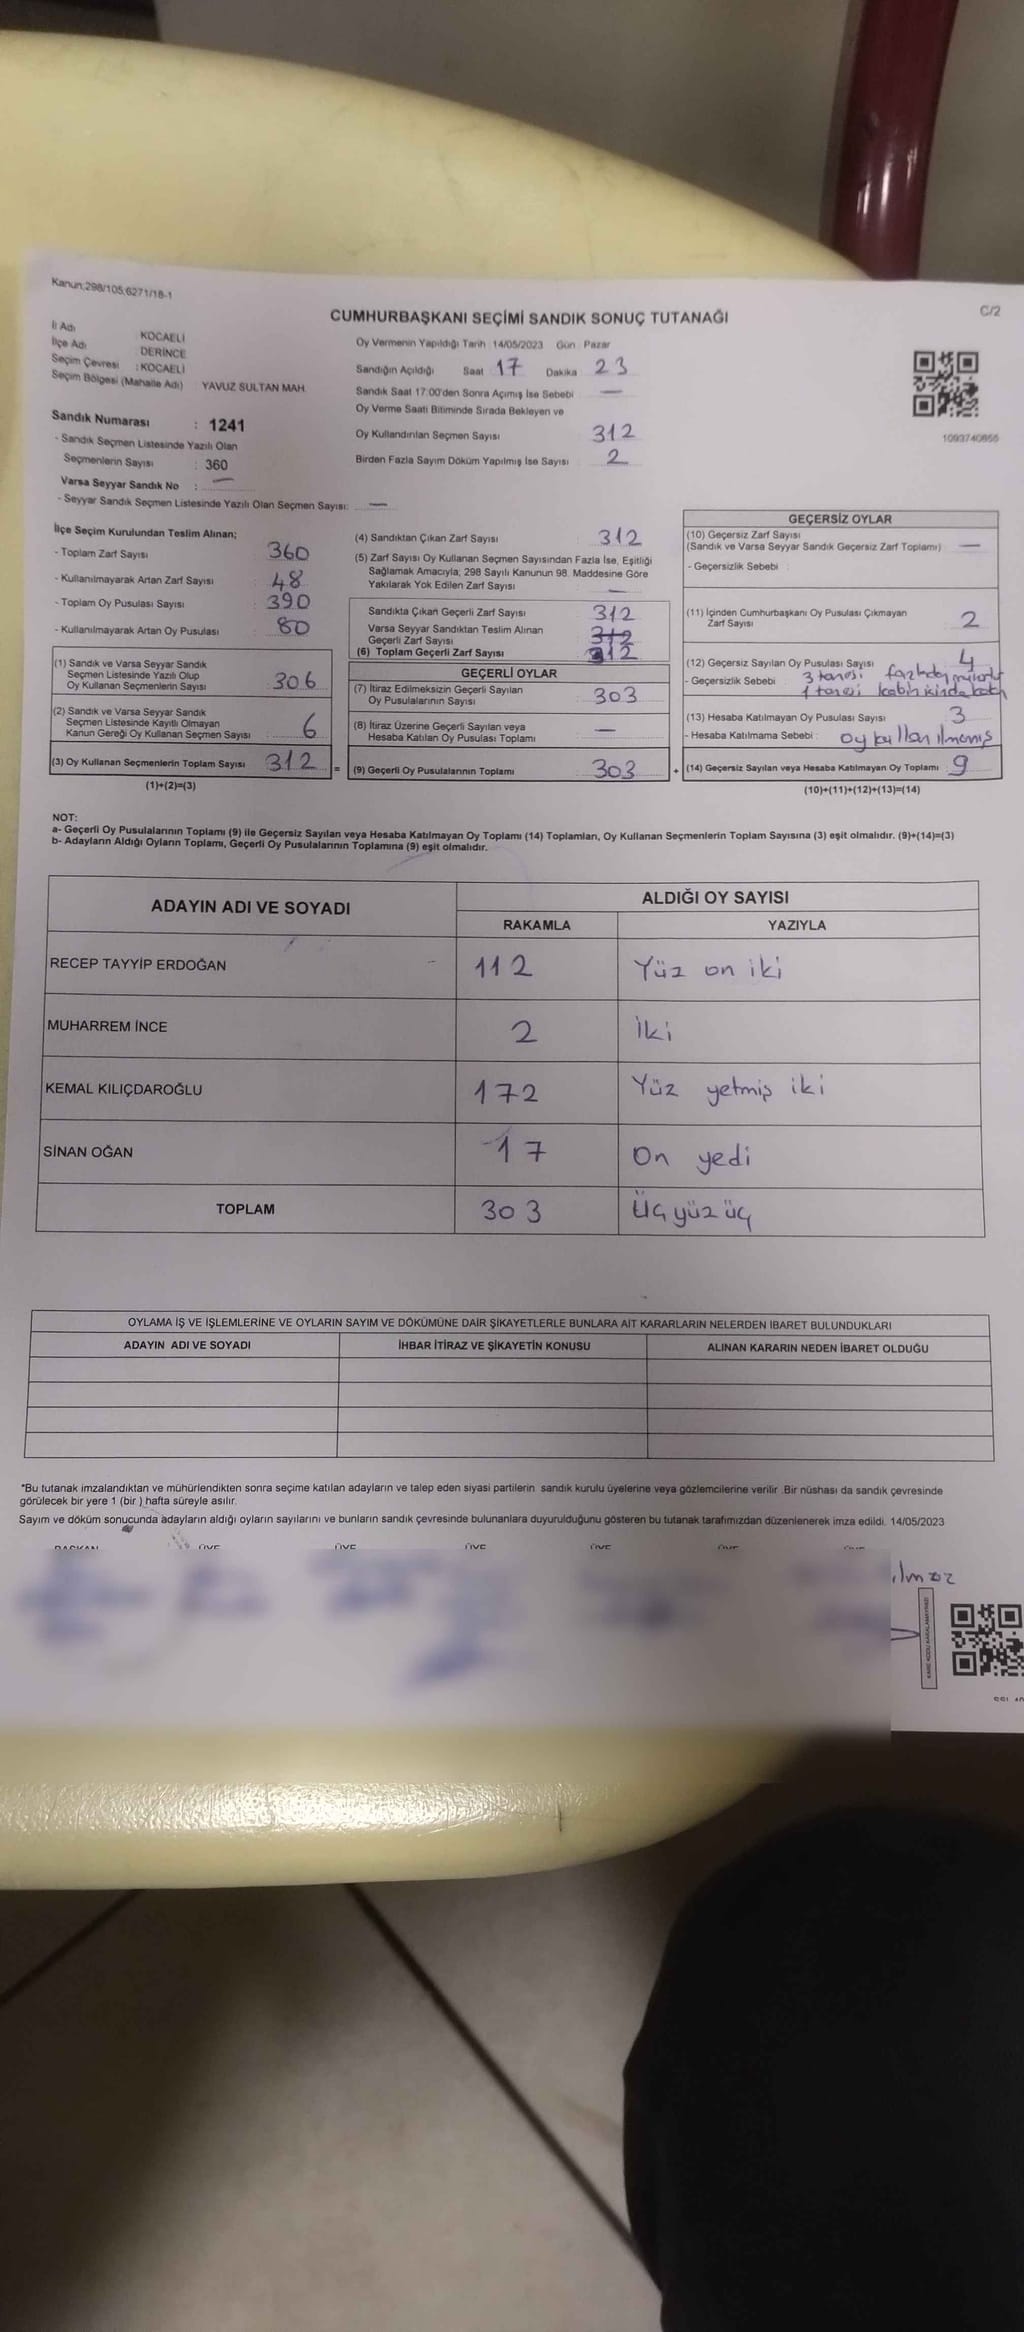 Kanun;298/105;6271/18-1
C/2
CUMHURBAŞKANI SEÇİMİ SANDIK SONUÇ TUTANAĞI
İl Adı : KOCAELİ
İlçe Adı : DERİNCE
Seçim Çevresi : KOCAELİ
Seçim Bölgesi (Mahalle Adı) YAVUZ SULTAN MAH.
Sandık Numarası : 1241
- Sandık Seçmen Listesinde Yazılı Olan
Seçmenlerin Sayısı : 360
Varsa Seyyar Sandık No : —
- Seyyar Sandık Seçmen Listesinde Yazılı Olan Seçmen Sayısı: —
Oy Vermenin Yapıldığı Tarih :14/05/2023 Gün : Pazar
Sandığın Açıldığı Saat 17 Dakika 23
Sandık Saat 17:00'den Sonra Açımış İse Sebebi : —
Oy Verme Saati Bitiminde Sırada Bekleyen ve
Oy Kullandırılan Seçmen Sayısı : 312
Birden Fazla Sayım Döküm Yapılmış İse Sayısı : 2
1093740855
İlçe Seçim Kurulundan Teslim Alınan;
- Toplam Zarf Sayısı : 360
- Kullanılmayarak Artan Zarf Sayısı : 48
- Toplam Oy Pusulası Sayısı : 390
- Kullanılmayarak Artan Oy Pusulası : 80
(1) Sandık ve Varsa Seyyar Sandık
Seçmen Listesinde Yazılı Olup
Oy Kullanan Seçmenlerin Sayısı : 306
(2) Sandık ve Varsa Seyyar Sandık
Seçmen Listesinde Kayıtlı Olmayan
Kanun Gereği Oy Kullanan Seçmen Sayısı : 6
(3) Oy Kullanan Seçmenlerin Toplam Sayısı : 312 =
(1)+(2)=(3)
(4) Sandıktan Çıkan Zarf Sayısı : 312
(5) Zarf Sayısı Oy Kullanan Seçmen Sayısından Fazla İse, Eşitliği
Sağlamak Amacıyla; 298 Sayılı Kanunun 98. Maddesine Göre
Yakılarak Yok Edilen Zarf Sayısı : —
Sandıkta Çıkan Geçerli Zarf Sayısı : 312
Varsa Seyyar Sandıktan Teslim Alınan
Geçerli Zarf Sayısı : 312
(6) Toplam Geçerli Zarf Sayısı : 312
GEÇERLİ OYLAR
(7) İtiraz Edilmeksizin Geçerli Sayılan
Oy Pusulalarının Sayısı : 303
(8) İtiraz Üzerine Geçerli Sayılan veya
Hesaba Katılan Oy Pusulası Toplamı : —
(9) Geçerli Oy Pusulalarının Toplamı : 303 +
GEÇERSİZ OYLAR
(10) Geçersiz Zarf Sayısı
(Sandık ve Varsa Seyyar Sandık Geçersiz Zarf Toplamı) : —
- Geçersizlik Sebebi :
(11) İçinden Cumhurbaşkanı Oy Pusulası Çıkmayan
Zarf Sayısı : 2
(12) Geçersiz Sayılan Oy Pusulası Sayısı : 4
- Geçersizlik Sebebi : 3 tanesi fazladan
1 tanesi kabin içinde
(13) Hesaba Katılmayan Oy Pusulası Sayısı : 3
- Hesaba Katılmama Sebebi : oy kullanılmamış
(14) Geçersiz Sayılan veya Hesaba Katılmayan Oy Toplamı : 9
(10)+(11)+(12)+(13)=(14)
NOT:
a- Geçerli Oy Pusulalarının Toplamı (9) ile Geçersiz Sayılan veya Hesaba Katılmayan Oy Toplamı (14) Toplamları, Oy Kullanan Seçmenlerin Toplam Sayısına (3) eşit olmalıdır. (9)+(14)=(3)
b- Adayların Aldığı Oyların Toplamı, Geçerli Oy Pusulalarının Toplamına (9) eşit olmalıdır.
ADAYIN ADI VE SOYADI ALDIĞI OY SAYISI
RAKAMLA YAZIYLA
RECEP TAYYİP ERDOĞAN 112 Yüz on iki
MUHARREM İNCE 2 İki
KEMAL KILIÇDAROĞLU 172 Yüz yetmiş iki
SİNAN OĞAN 17 On yedi
TOPLAM 303 Üçyüz üç
OYLAMA İŞ VE İŞLEMLERİNE VE OYLARIN SAYIM VE DÖKÜMÜNE DAİR ŞİKAYETLERLE BUNLARA AİT KARARLARIN NELERDEN İBARET BULUNDUKLARI
ADAYIN ADI VE SOYADI İHBAR İTİRAZ VE ŞİKAYETİN KONUSU ALINAN KARARIN NEDEN İBARET OLDUĞU
*Bu tutanak imzalandıktan ve mühürlendikten sonra seçime katılan adayların ve talep eden siyasi partilerin sandık kurulu üyelerine veya gözlemcilerine verilir .Bir nüshası da sandık çevresinde
görülecek bir yere 1 (bir ) hafta süreyle asılır.
Sayım ve döküm sonucunda adayların aldığı oyların sayılarını ve bunların sandık çevresinde bulunanlara duyurulduğunu gösteren bu tutanak tarafımızdan düzenlenerek imza edildi. 14/05/2023
BAŞKAN ÜYE ÜYE ÜYE ÜYE ÜYE ÜYE